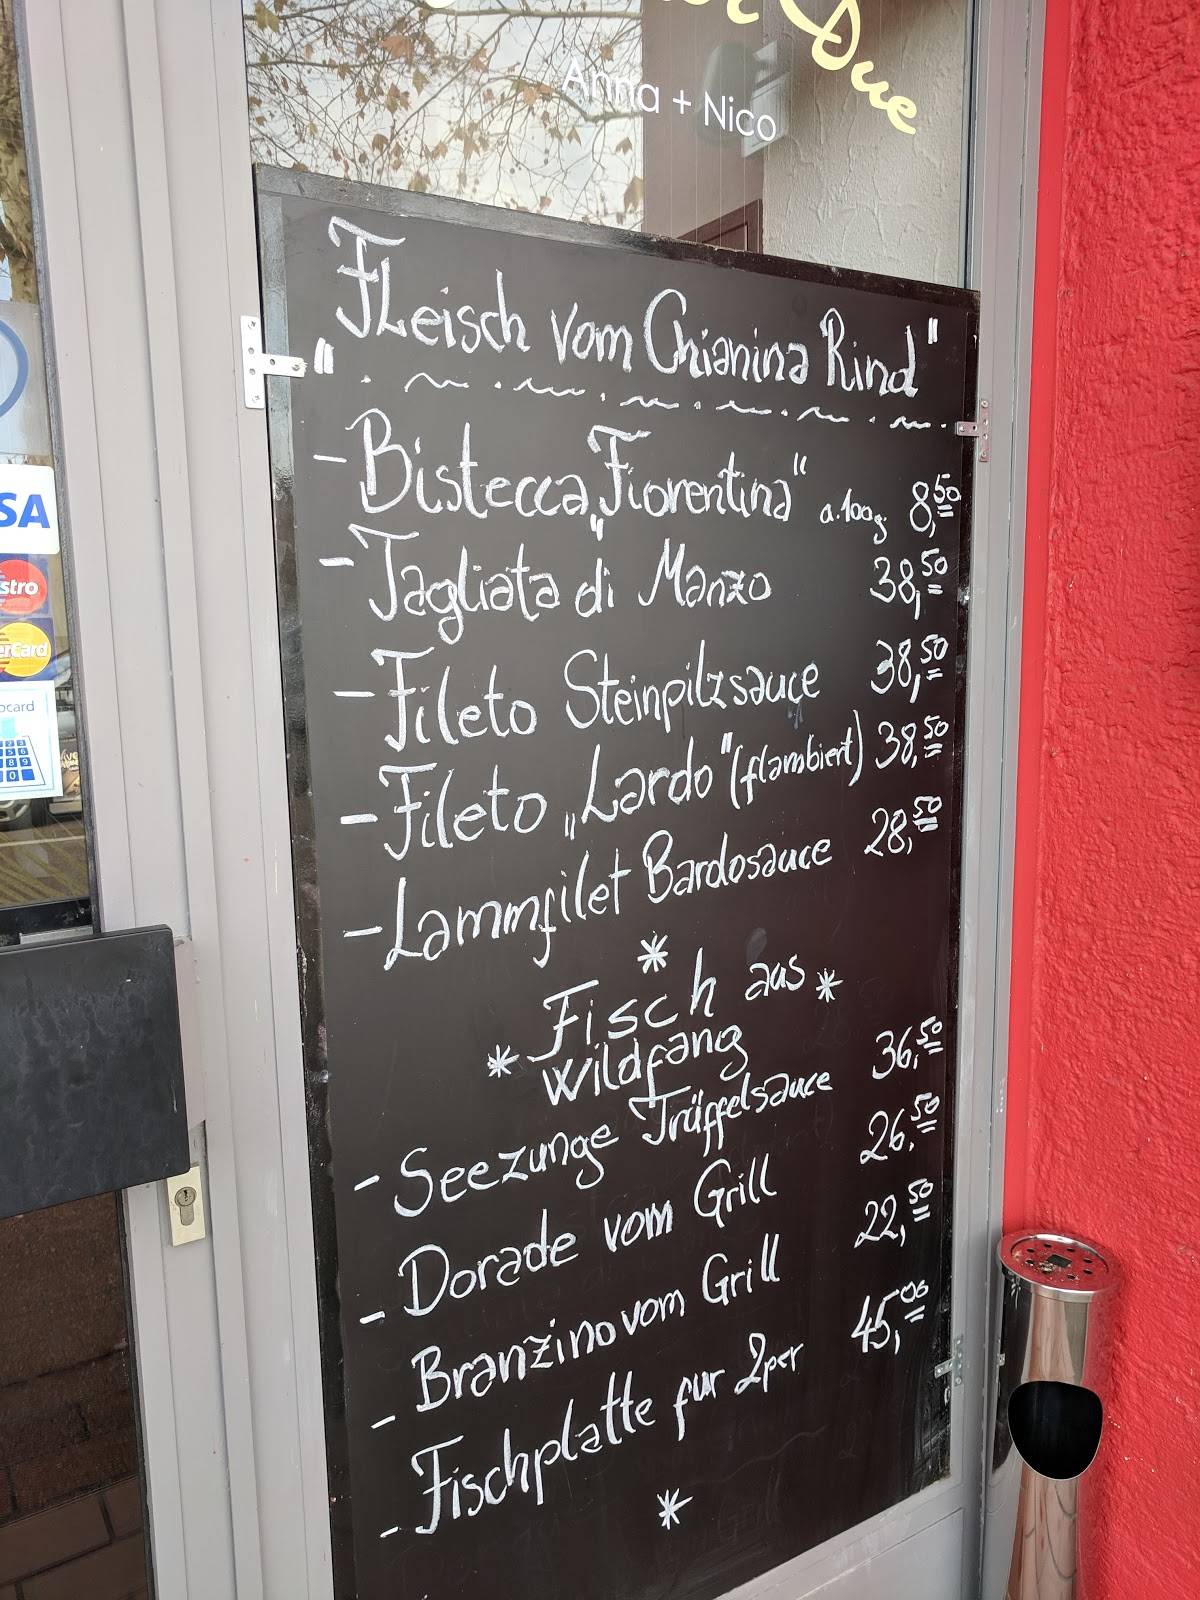 Due
Anna + Nico
"Fleisch vom Chianina Rind"
- Bistecca "Fiorentina" a.100g 8,50
- Tagliata di Manzo 38,50
- Fileto Steinpilzsauce 38,50
- Fileto „Lardo" (flambiert) 38,50
- Lammfilet Bardosauce 28,50
*
Fisch aus *
* Wildfang
- Seezunge Trüffelsauce 36,50
- Dorade vom Grill 26,50
- Branzino vom Grill 22,50
- Fischplatte fur 2per 45,00
*
VISA
stro
erCard
ocard